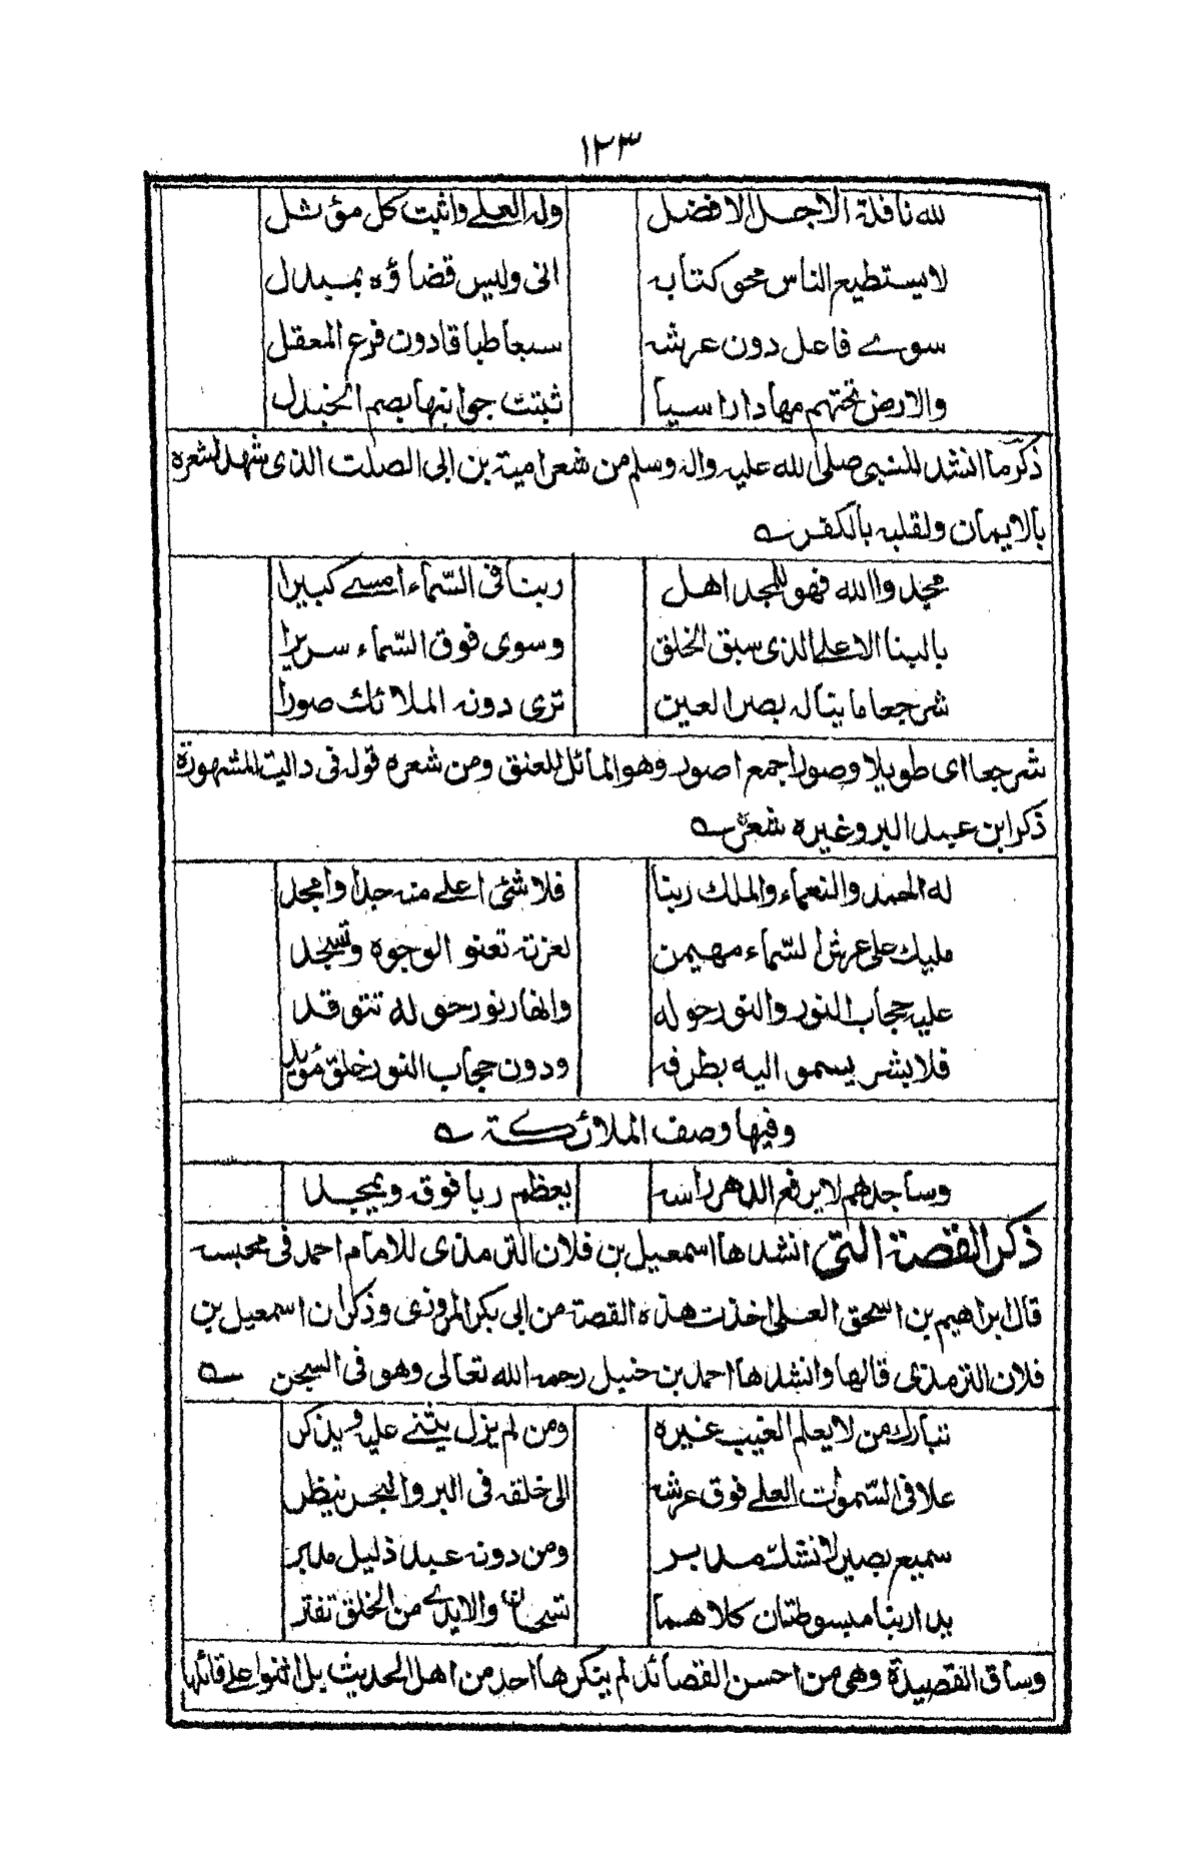 ١٢٣
لله نافلة الاجل الافضل وله العلے واثيت كل مؤثل
لا يستطيع الناس محو كتابه انى وليس قضاؤه بمبدل
سوے فاعل دون عرشه سبعا طباقا دون فرع المعقل
والارض تحتهم مهادا راسيا ثبتت جوانبها بصم الخبدل
ذكر ما انشد للنبى صلى الله عليه واله وسلم من شعر امية بن ابى الصلت الذى شهد لشعره
بالايمان ولقلبه بالكفر
مجدوا الله فهو للمجد اهل ربنا فى السّماء امسے كبيرا
بالبنا الاعلے الذى سبق الخلق وسوى فوق السّماء سريرا
شرجعا ما يناله بصر العين ترى دونه الملائك صورا
شرجعا اى طويلا وصورا جمع اصور وهو المائل للعنق ومن شعره قوله فى داليته المشهورة
ذكر ابن عبد البر وغيره شعر
له الحمد والنعماء والملك ربنا فلا شئ اعلے منه جدا وامجد
مليك على عرش السّماء مهيمن لعزته تعنو الوجوه وتسجد
عليه حجاب النور والنور حوله وانهار نور حوله تتوقد
فلا بشر يسمو اليه بطرفه ودون حجاب النور خلق مؤيد
وفيها وصف الملائكة
وساجدهم لا يرفع الدهر راسه يعظم ربا فوقه ويمجد
ذكر القصة التى انشدها اسمعيل بن فلان الترمذى للامام احمد فى محبسه
قال ابراهيم بن اسحق العلى اخذت هذه القصة من ابى بكر المروزى وذكر ان اسمعيل بن
فلان الترمذى قالها وانشدها احمد بن حنبل رحمه الله تعالى وهو فى السجن
تبارك من لا يعلم الغيب غيره ومن لم يزل يثنے عليه ويذكر
علا فى السّموات العلے فوق عرشه الى خلقه فى البر والبحر ينظر
سميع بصير لا نشك مدبر ومن دونه عبد ذليل مدبر
يدا ربنا مبسوطتان كلاهما تسحان والايدے من الخلق تفتر
وساق القصيدة وهى من احسن القصائد لم ينكرها احد من اهل الحديث بل اثنوا على قائلها